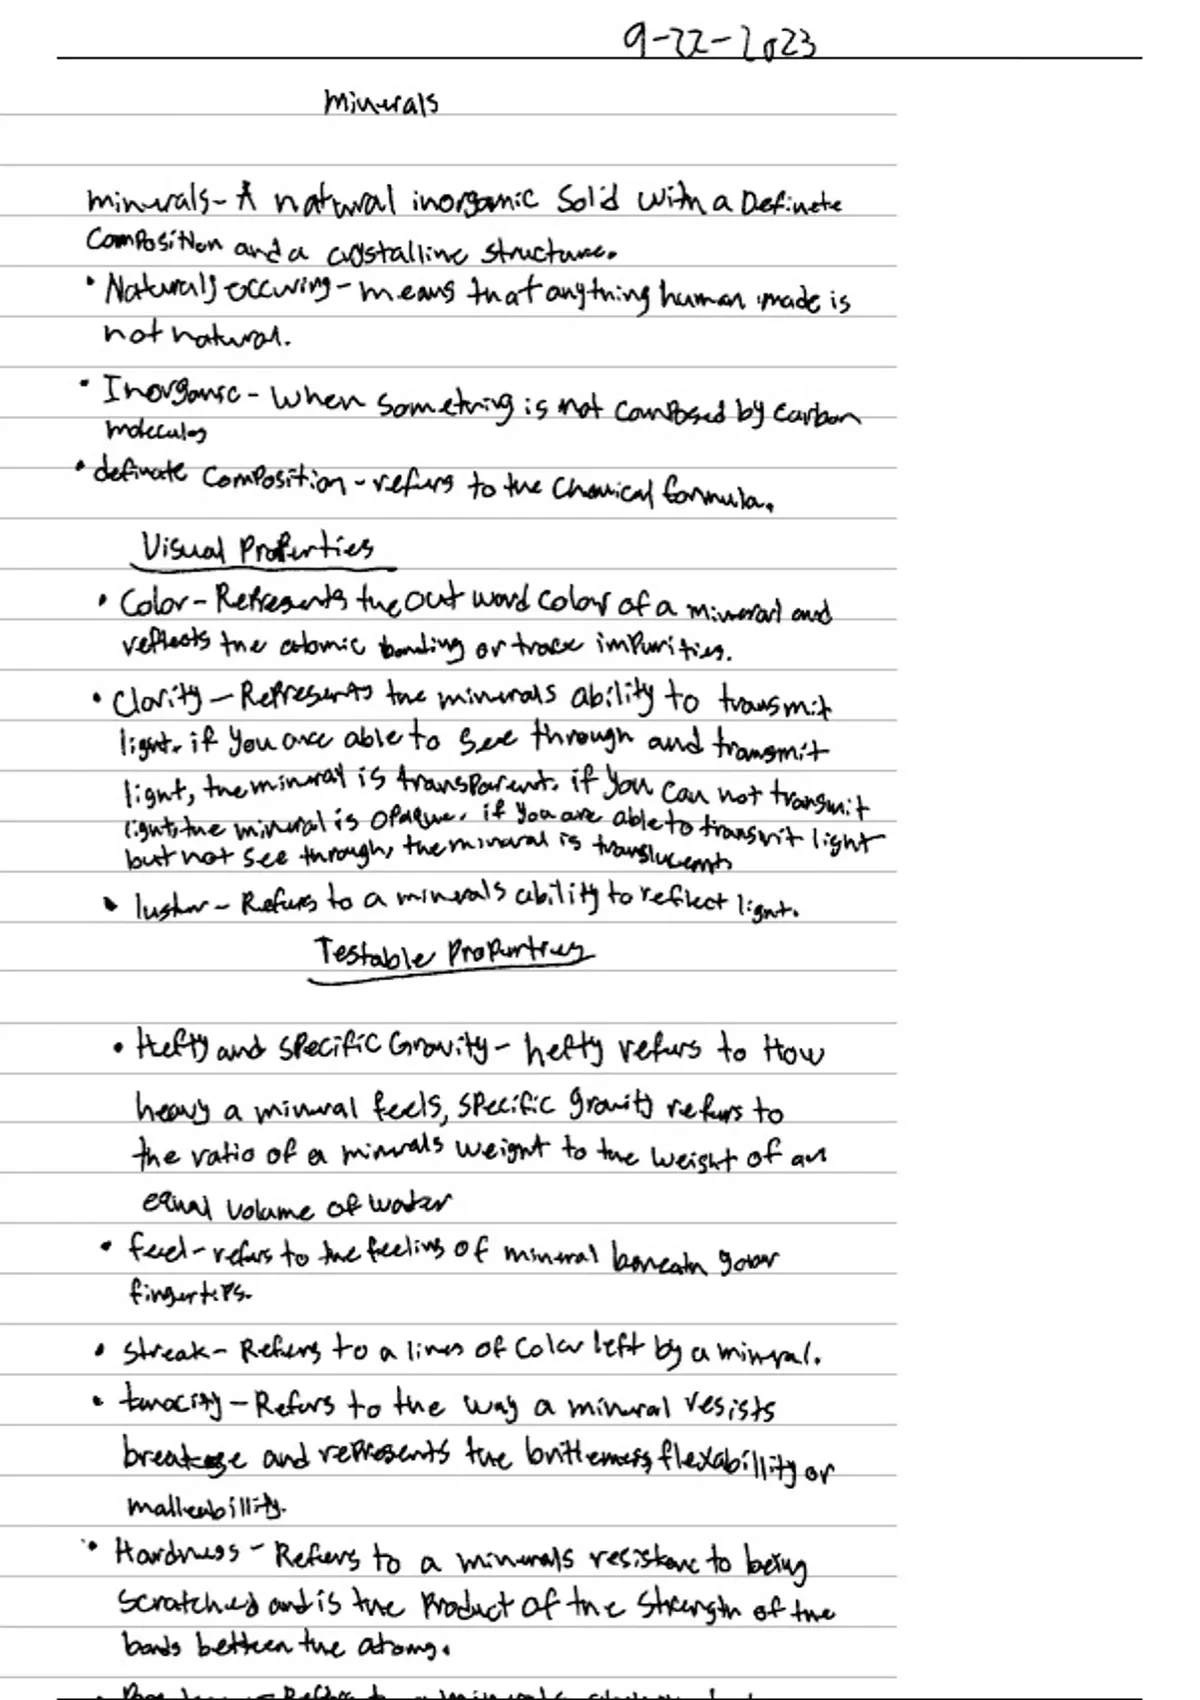 9-22-2023
Minerals
minerals- A natural inorganic Solid with a Definete
Composition and a crystalline structure.
• Naturally occuring - means that anything human made is
not natural.
• Inorganic - When something is not composed by carbon
molecules
• definate Composition - refers to the Chemical formula.
Visual Properties
• Color - Represents the out ward color of a mineral and
reflects the atomic bonding or trace impurities.
• Clarity - Represents the minerals ability to transmit
light. if you are able to see through and transmit
light, the mineral is transparent. if you can not transmit
light, the mineral is opaque. if you are able to transmit light
but not see through, the mineral is translucent
• luster - Refers to a minerals ability to reflect light.
Testable Properties
• Hefty and Specific Gravity - hefty refers to How
heavy a mineral feels, specific gravity refers to
the ratio of a minerals weight to the weight of an
equal volume of water
• feel - refers to the feeling of mineral beneath your
fingertips.
• streak - Refers to a lines of Color left by a mineral.
• tenacity - Refers to the way a mineral resists
breakage and represents the brittleness, flexabillity or
malleabillity.
• Hardness - Refers to a minerals resistanc to being
Scratched and is the Product of the Strength of the
bonds between the atoms.
Refers to a minerals